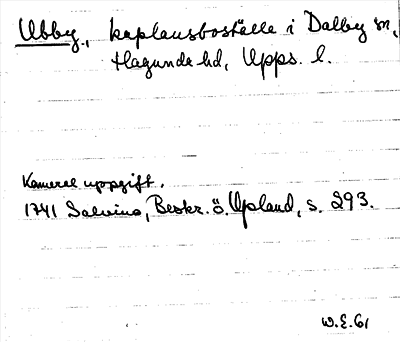 Ubby, kaplansboställe i Dalby sn,
Hagunda hd, Upps. l.
Kameral uppgift.
1741 Salvius, Beskr. ö. Upland, s. 293.
W.E. 61